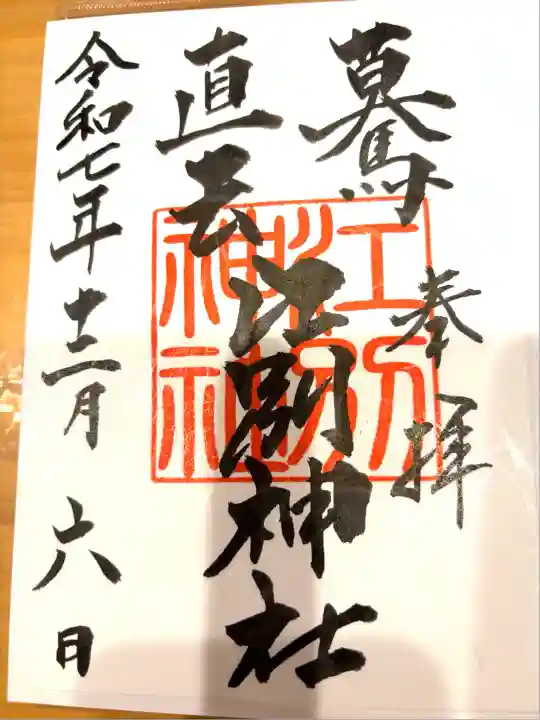 驀直去
奉拝
江別神社
江別神社
令和七年十二月六日